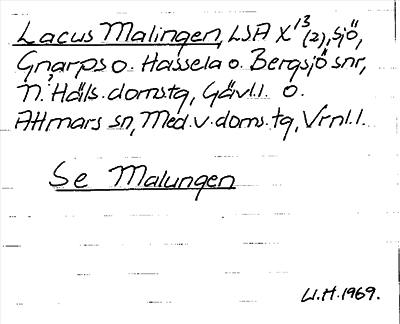 Lacus Malingen, LSA X¹³(2), sjö,
Gnarps o. Hassela o. Bergsjö snr,
N. Häls. domstg, Gävl.l. o.
Attmars sn, Med. v. doms. tg, Vrnl.l.
Se Malungen
U.H. 1969.